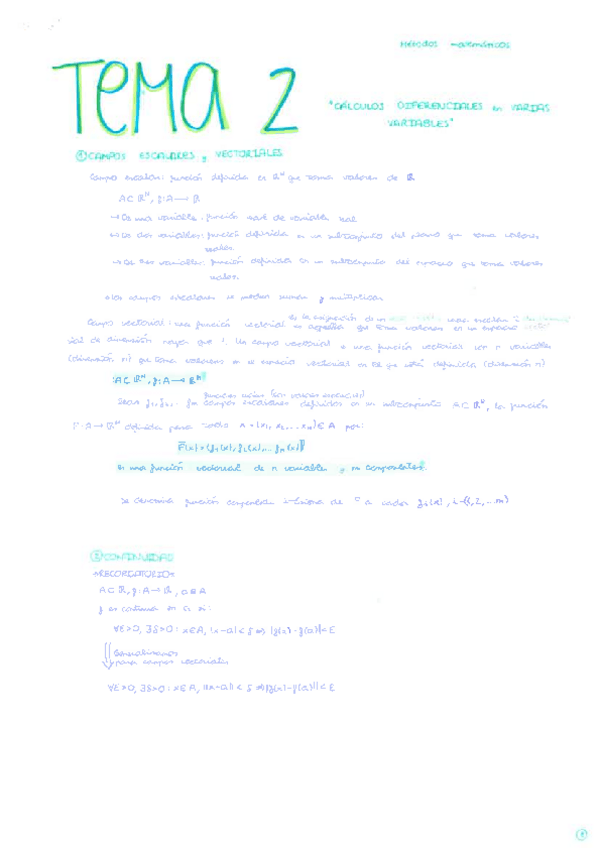 Métodos matemáticos
TEMA 2
"CÁLCULOS DIFERENCIALES en VARIAS
VARIABLES"
① CAMPOS ESCALARES y VECTORIALES
Campo escalar: función definida en ℝᴺ que toma valores de ℝ
A⊂ℝᴺ, f: A→ℝ
→ De una variable: función real de variable real
→ De dos variables: función definida en un subconjunto del plano que toma valores
reales.
→ De tres variables: función definida en un subconjunto del espacio que toma valores
reales.
los campos escalares se pueden sumar y multiplicar
es la asignación de un
Campo vectorial: una función vectorial es aquella que toma valores en un espacio
de dimensión mayor que 1. Un campo vectorial es una función vectorial con n variables
(dimensión n) que toma valores en el espacio vectorial en el que está definida (dimensión n)
A⊂ℝᴺ, f: A→ℝᴺ
Sean f₁, f₂, ... fm campos escalares definidos en un subconjunto A⊂ℝⁿ, la función
F: A→ℝᵐ definida para cada x=(x₁, x₂, ... xₙ)∈A por:
F̄(x)=(f₁(x), f₂(x), ... fm(x))
es una función vectorial de n variables y m componentes.
Se denomina función componente i-ésima de F a cada fᵢ(x), i={1, 2, ... m}
② CONTINUIDAD
RECORDATORIO
A⊂ℝ, f: A→ℝ, a∈A
f es continua en a si:
∀ε>0, ∃δ>0: x∈A, |x-a|<δ ⇒ |f(x)-f(a)|<ε
Generalizamos
para campos vectoriales
∀ε>0, ∃δ>0: x∈A, ||x-a||<δ ⇒ ||f(x)-f(a)||<ε
①